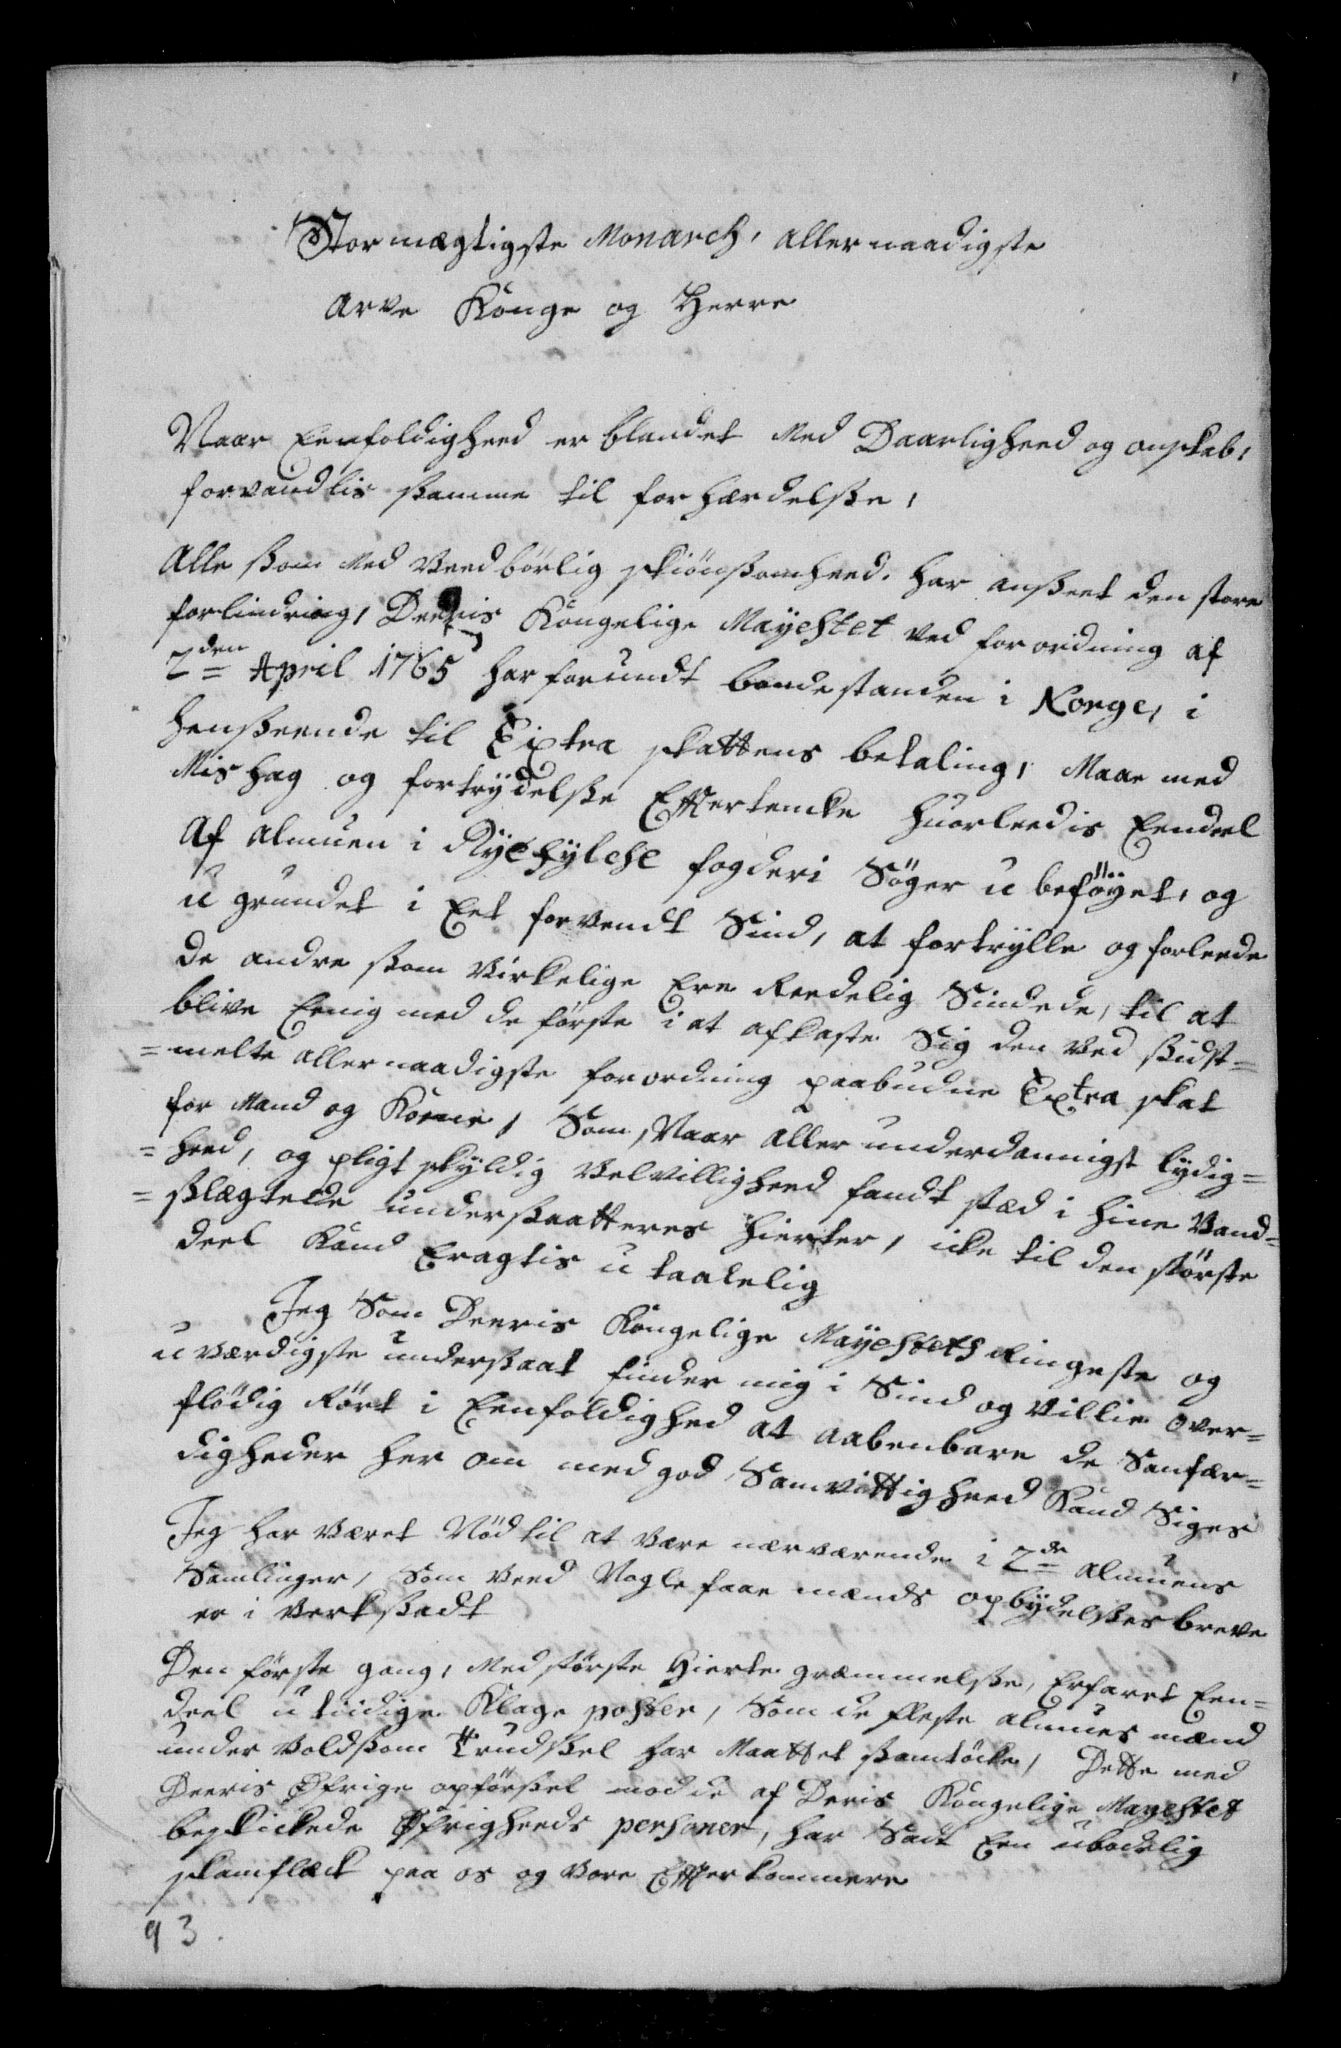 Stormægtigste Monarch, allernaadigste
Arve Konge og Herre
Naar Eenfoldigheed er blandet Med Daarligheed og onskab,
forvandlis samme til forhærdelse,
Alle som Med Veedbörlig skiönsomheed har anseet den store
forlindring, Deeris Kongelige Mayestet ved forordning af
2den April 1765 har forundt bondestanden i Norge, i
henseende til Extra skattens betaling, Maae med
Mishag og fortrydelse Eftertencke huorleedis Eendeel
Af Almuen i Ryefylche fogderi Söger u beföyet, og
u grundet i Eet forvendt Sind, at fortrylle og forleede
de andre som Virkelige Ere Reedelig Sindede, til at
blive Eenig med de förste i at afkaste Sig den Ved sidst=
=melte allernaadigste forordning paabudne Extra skat
for Mand og Kone, Som, Naar aller underdannigst lydig=
=heed, og pligt skyldig Velvilligheed fandt stæd i hine Vand=
=slægtede undersaatteres Hierter, icke til den störste
deel Kand Eragtis u taalelig
Jeg Som Deeris Kongelige Mayestets Ringeste og
u værdigste undersaat finder mig i Sind og Villie over=
flödig Rört i Eenfoldighed at aabenbare de Sanfær=
digheder her om med god Samvittigheed Kand Siges
Jeg har Været Nöd til at Være nærværende i 2de Almuens
Samlinger, Som Veed Nogle faae mænds opbydelses breve
er i Verksadt
Den förste gang, Med störste Hierte græmmelse, Erfaret Een=
deel u tiidige Klage poster, Som de fleste almues mænd
under Voldsom Trudsel har Maattet samtöcke, Dette med
Deeris Öfrige opförsel mod de af Deris Kongelige Mayestet
beskickede Öfrigheeds personer, har Sadt Een ubodelig
skamflæck paa os og Vore Efterkommere
93.